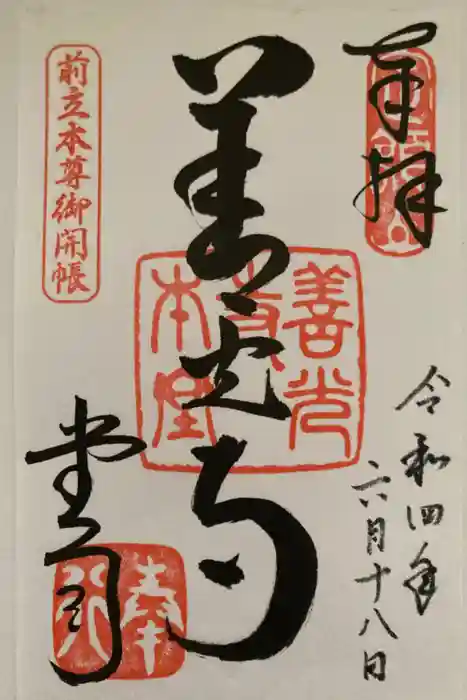 奉拝
令和四年
六月十八日
善光寺
善光
寺
本堂
前立本尊御開帳
堂司
奉行